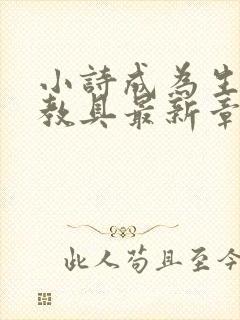 小詩成為生
教具最新章
此人苟且至今